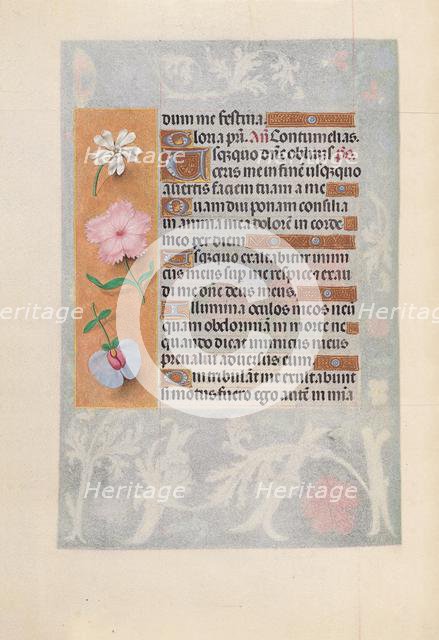 dum me festina.
Gloria pri. An Contumelias.
Usqzquo dne obliuis ps
ceris me in finem usqzquo
auertis faciem tuam a me
Quam diu ponam consilia
in anima mea dolorem in corde
meo per diem
Usqzquo exaltabitur inimi
cus meus sup me respice et exau
di me dne deus meus.
Illumina oculos meos nen
quam obdormia in morte ne
quando dicat inimicus meus
preualui aduersus eum.
Qui tribulant me exultabunt
si motus fuero ego autem in mia
Heritage
Heritage
Heritage
Heritage
Heritage
Heritage